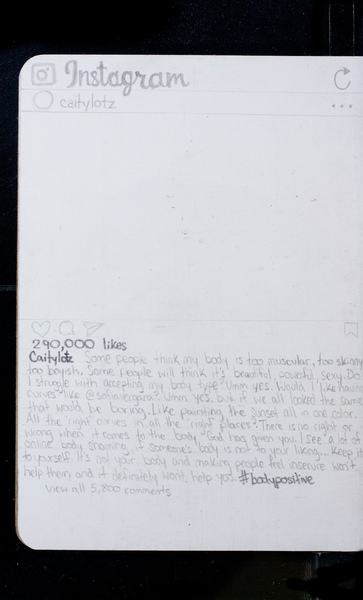 Instagram
caitylotz
290,000 likes
Caitylotz Some people think my body is too muscular, too skinny
too boyish. Some people will think it's beautiful, powerful, sexy. Do
I struggle with accepting my body type? Umm yes. Would I like having
curves like @sofiavergara? Umm yes. but if we all looked the same
that would be boring. Like painting the sunset all in one color.
All the "right" curves in all the "right places". There is no right or
wrong when it comes to the body God has given you. I see a lot of
online body shaming, if someone's body is not to your liking... keep it
to yourself. It's not your body and making people feel insecure won't
help them and it definitely wont help you. #bodypositive
view all 5,800 comments